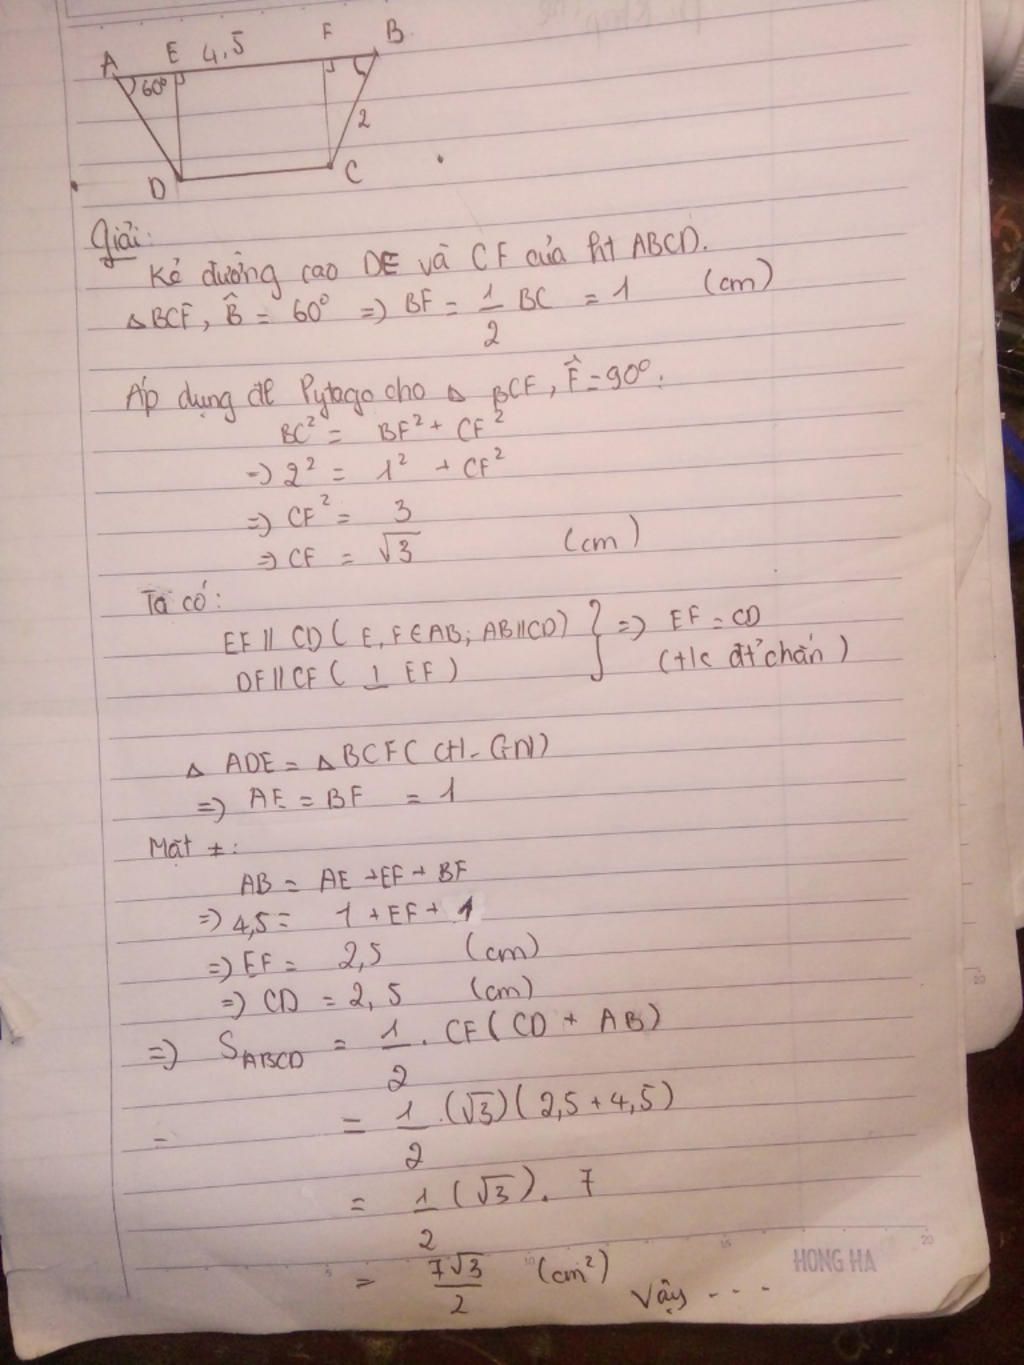 A E 4,5 F B
60°
2
D C
Giải:
Kẻ đường cao DE và CF của ht ABCD.
△BCF, B̂ = 60° => BF = 1/2 BC = 1 (cm)
Áp dụng đl Pytago cho △ BCF, F̂ = 90°:
BC² = BF² + CF²
=> 2² = 1² + CF²
=> CF² = 3
=> CF = √3 (cm)
Ta có:
EF // CD ( E, F ∈ AB; AB // CD) } => EF = CD
DF // CF ( ⊥ EF ) (t/c đt chắn )
△ ADE = △ BCF ( CH - GN)
=> AE = BF = 1
Mặt ≠:
AB = AE + EF + BF
=> 4,5 = 1 + EF + 1
=> EF = 2,5 (cm)
=> CD = 2,5 (cm)
=> SABCD = 1/2 . CF ( CD + AB )
= 1/2 . (√3) ( 2,5 + 4,5 )
= 1/2 (√3) . 7
= 7√3/2 (cm²) Vậy ...
HONG HA
15
20
20